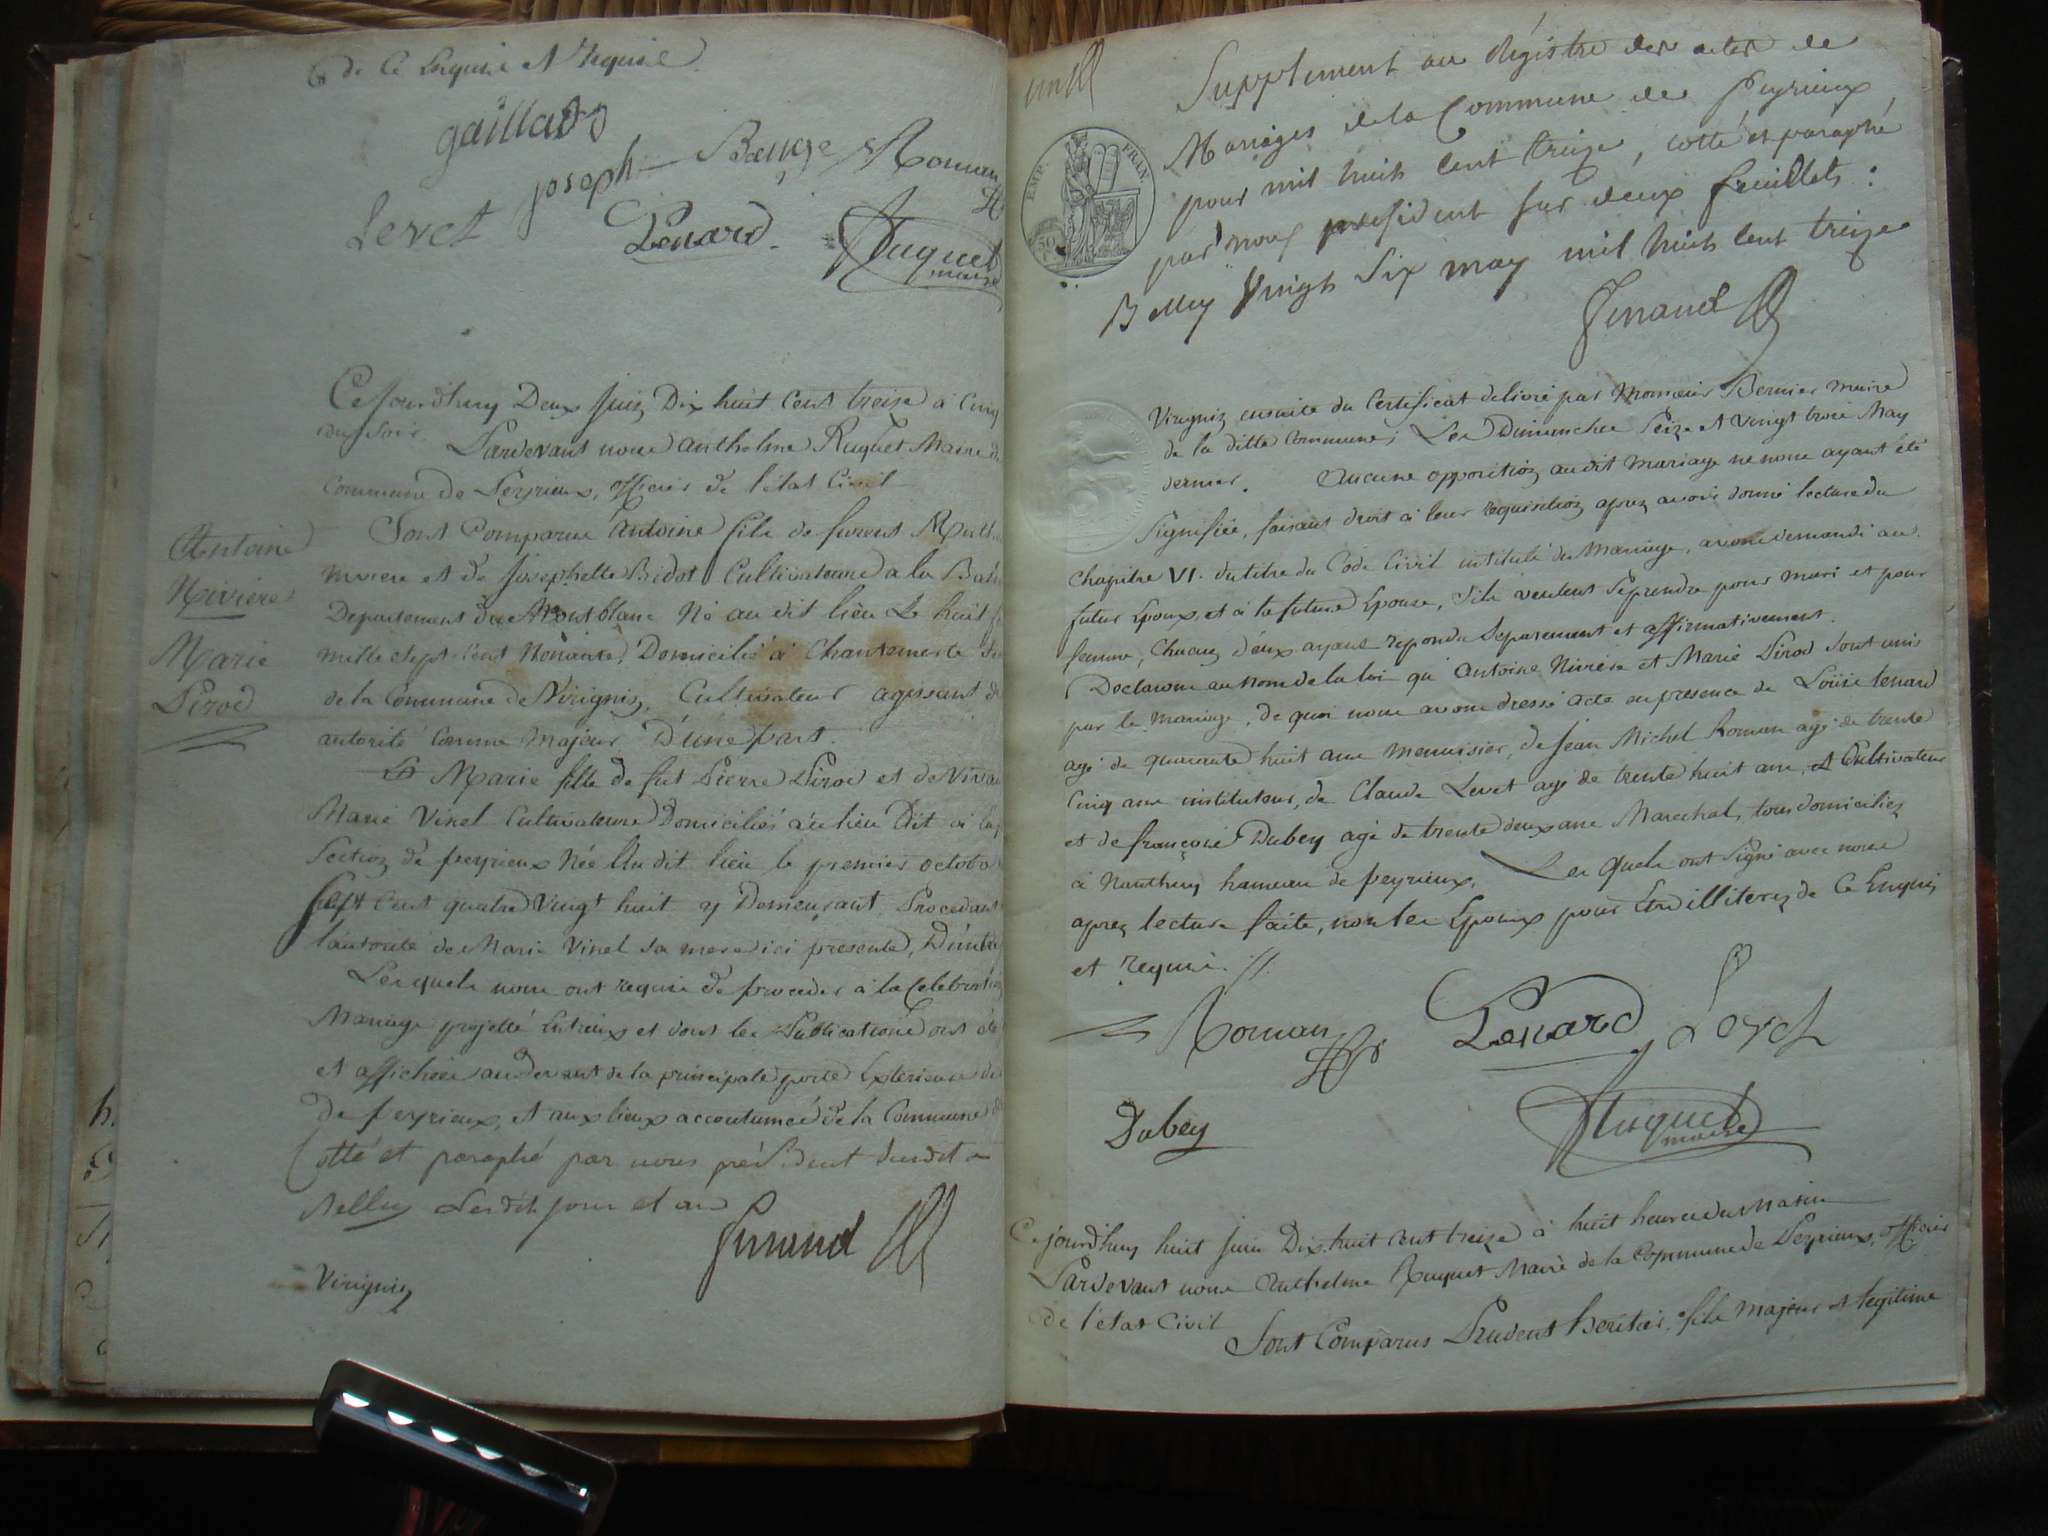 de ce Enquis et requis
gaillard
joseph Bauge Roman
Levet Lenard
Ruguet
maire
Cejourdhuy Deux juin Dix huit Cent treize à Cinq
du soir. Pardevant nous anthelme Ruguet Maire de
Commune de Peyrieux, officier de l'état Civil
Antoine
Nivière
Marie
Pirod
Sont Comparus Antoine fils de
et de Josephette Bidot Cultivateurs a la
Departement du Montblanc Né au dit lieu Le huit
mille Sept Cent Nonante, Domicilié à Chantemerle
de la Commune de Virignin, Cultivateur agissant de
autorité Comme Majeur D'une part.
Et Marie fille de fut Pierre Pirod et de
Marie Vinel Cultivateurs Domiciliés au lieu Dit à
Section de peyrieux Née Au dit lieu le premier octobre
Sept Cent quatre Vingt huit y Demeurant, Procedant
l'autorité de Marie Vinel sa mere ici presente, D'autre
Lesquels nous ont requis de proceder à la Celebration
Mariage projetté Entreux et dont les Publications ont été
et affichées au devant de la principale porte Exterieure de
de peyrieux, et aux lieux accoutumés de la Commune de
Cotté et paraphé par nous président dudit
Belley Lesdit jour et an
Genand
Virignin
Supplement au Régistre des actes de
Mariages de la Commune de Peyrieux
pour mil huit Cent treize, cotté et paraphé
par nous président sur deux feuillets :
Belley Vingt Six may mil huit Cent treize
EMP. FRAN.
Genand
Virignin ensuite du Certificat delivré par Monsieur Bernier maire
de la ditte Commune, Les Dimanches Seize et Vingt trois May
dernier. Aucune opposition au dit mariage ne nous ayant été
Signifiée, faisant droit à leur requisition, apres avoir donné lecture du
Chapitre VI. du titre du Code Civil intitulé du Mariage, avons demandé au
futur Epoux, et à la future Epouse, S'ils veulent Se prendre pour mari et pour
femme, Chacun d'eux ayant repondu Separement et affirmativement.
Declarons au nom de la loi qu'Antoine Nivière et Marie Pirod Sont unis
par le mariage, de quoi nous avons dressé acte en presence de Loüis Lenard
agé de quarante huit ans menuisier, de Jean Michel Roman agé de trente
Cinq ans instituteur, de Claude Levet agé de trente huit ans, Cultivateur
et de françois Dubey agé de trente deux ans Marechal, tous domiciliés
à Nanthuy hameau de peyrieux, Les quels ont Signé avec nous
apres lecture faite, non les Epoux pour Etre illiterés de Ce Enquis
et requis.
Roman Lenard Levet
Dubey Ruguet
maire
Cejourdhuy huit juin Dix huit Cent treize à huit heures du Matin
Pardevant nous Anthelme Ruguet Maire de la Commune de Peyrieux, officier
de l'état Civil
Sont Comparus Prudent heritier, fils majeur et legitime